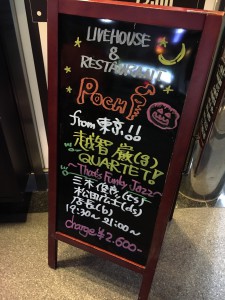 LIVEHOUSE
&
RESTAURANT
POCHI
from 東京!!
越智 巌(g)
QUARTET!
~That's Funky Jazz~
三木 俊亮(es)
松田広士(ds)
店長(b)
19:30~21:00~
charge ¥2.600-